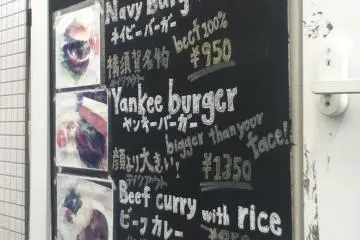 Navy Burg
ネイビーバーガー
beef 100%
横須賀名物
¥950
テイクアウト
Yankee burger
ヤンキーバーガー
bigger than your face!
顔より大きい!
¥1350
テイクアウト
Beef curry with rice
ビーフカレー